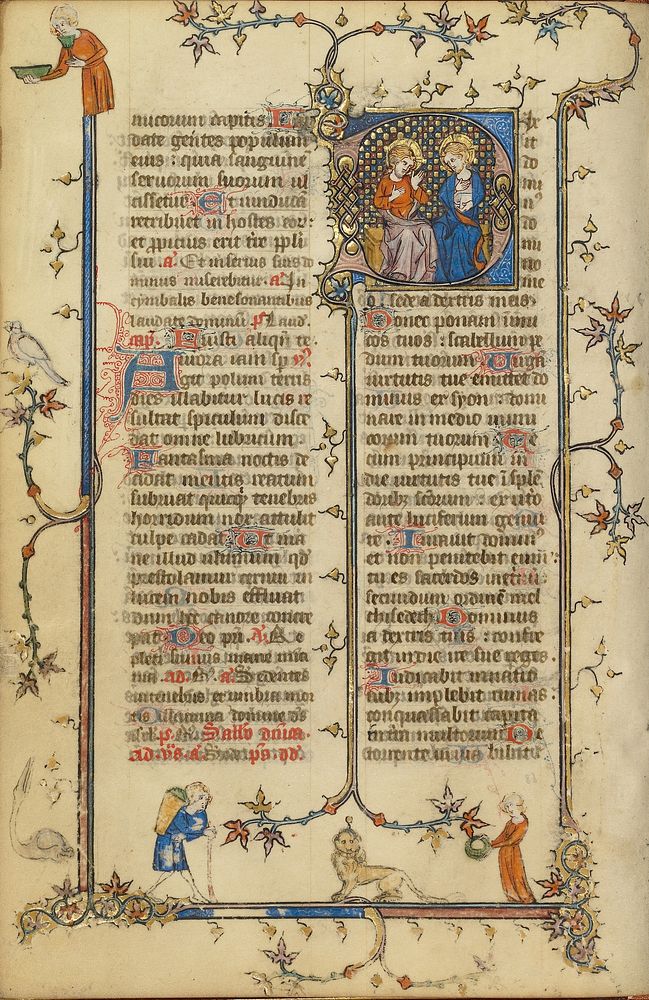 nicorum capitis
date gentes populum
eius : quia sanguine
seruorum suorum ul
ciscetur Et uindictā
retribuet in hostes eor:
et ppicius erit tre ppli
sui . a. Et inserius suis do
minus miserebitur . a. In
cymbalis benesonantibus
laudate dominū ps. Laud.
cap. aliqn te.
Aurora iam sp
git polum terris
dies illabitur lucis re
sultat spiculum disce
dat omne lubricum .
Fantasma noctis de
cidat mentis reatum
subruat quicq tenebris
horridum nox attulit
culpe cadat Ut ma
ne illud ultimum qd
prestolamur cernui in
lucem nobis effluat
dum hec canore concre
pat Deo pri . a. Re
pleti sumus mane mia
tua . ad. B. a. Sedentes
intenebris et umbra mor
tis Illumina domine ds
a Sede a dextris meis
Donec ponam inimi
cos tuos : scabellum pe
dum tuorum Uirga
uirtutis tue emittet do
minus ex syon : domi
nare in medio inimi
corum tuorum Te
cum principium in
die uirtutis tue ī splē
doribȝ scōrum : ex uto
ante luciferum genui
te . Iurauit domin
et non penitebit eum :
tu es sacerdos in
secundum ordinē mel
chisedech Dominus
a dextris tuis : confre
git in die ire sue reges .
Iudicabit in natio
nibȝ implebit ruinas
conquassabit capita
in terra multorum De
torrente in uia bibet